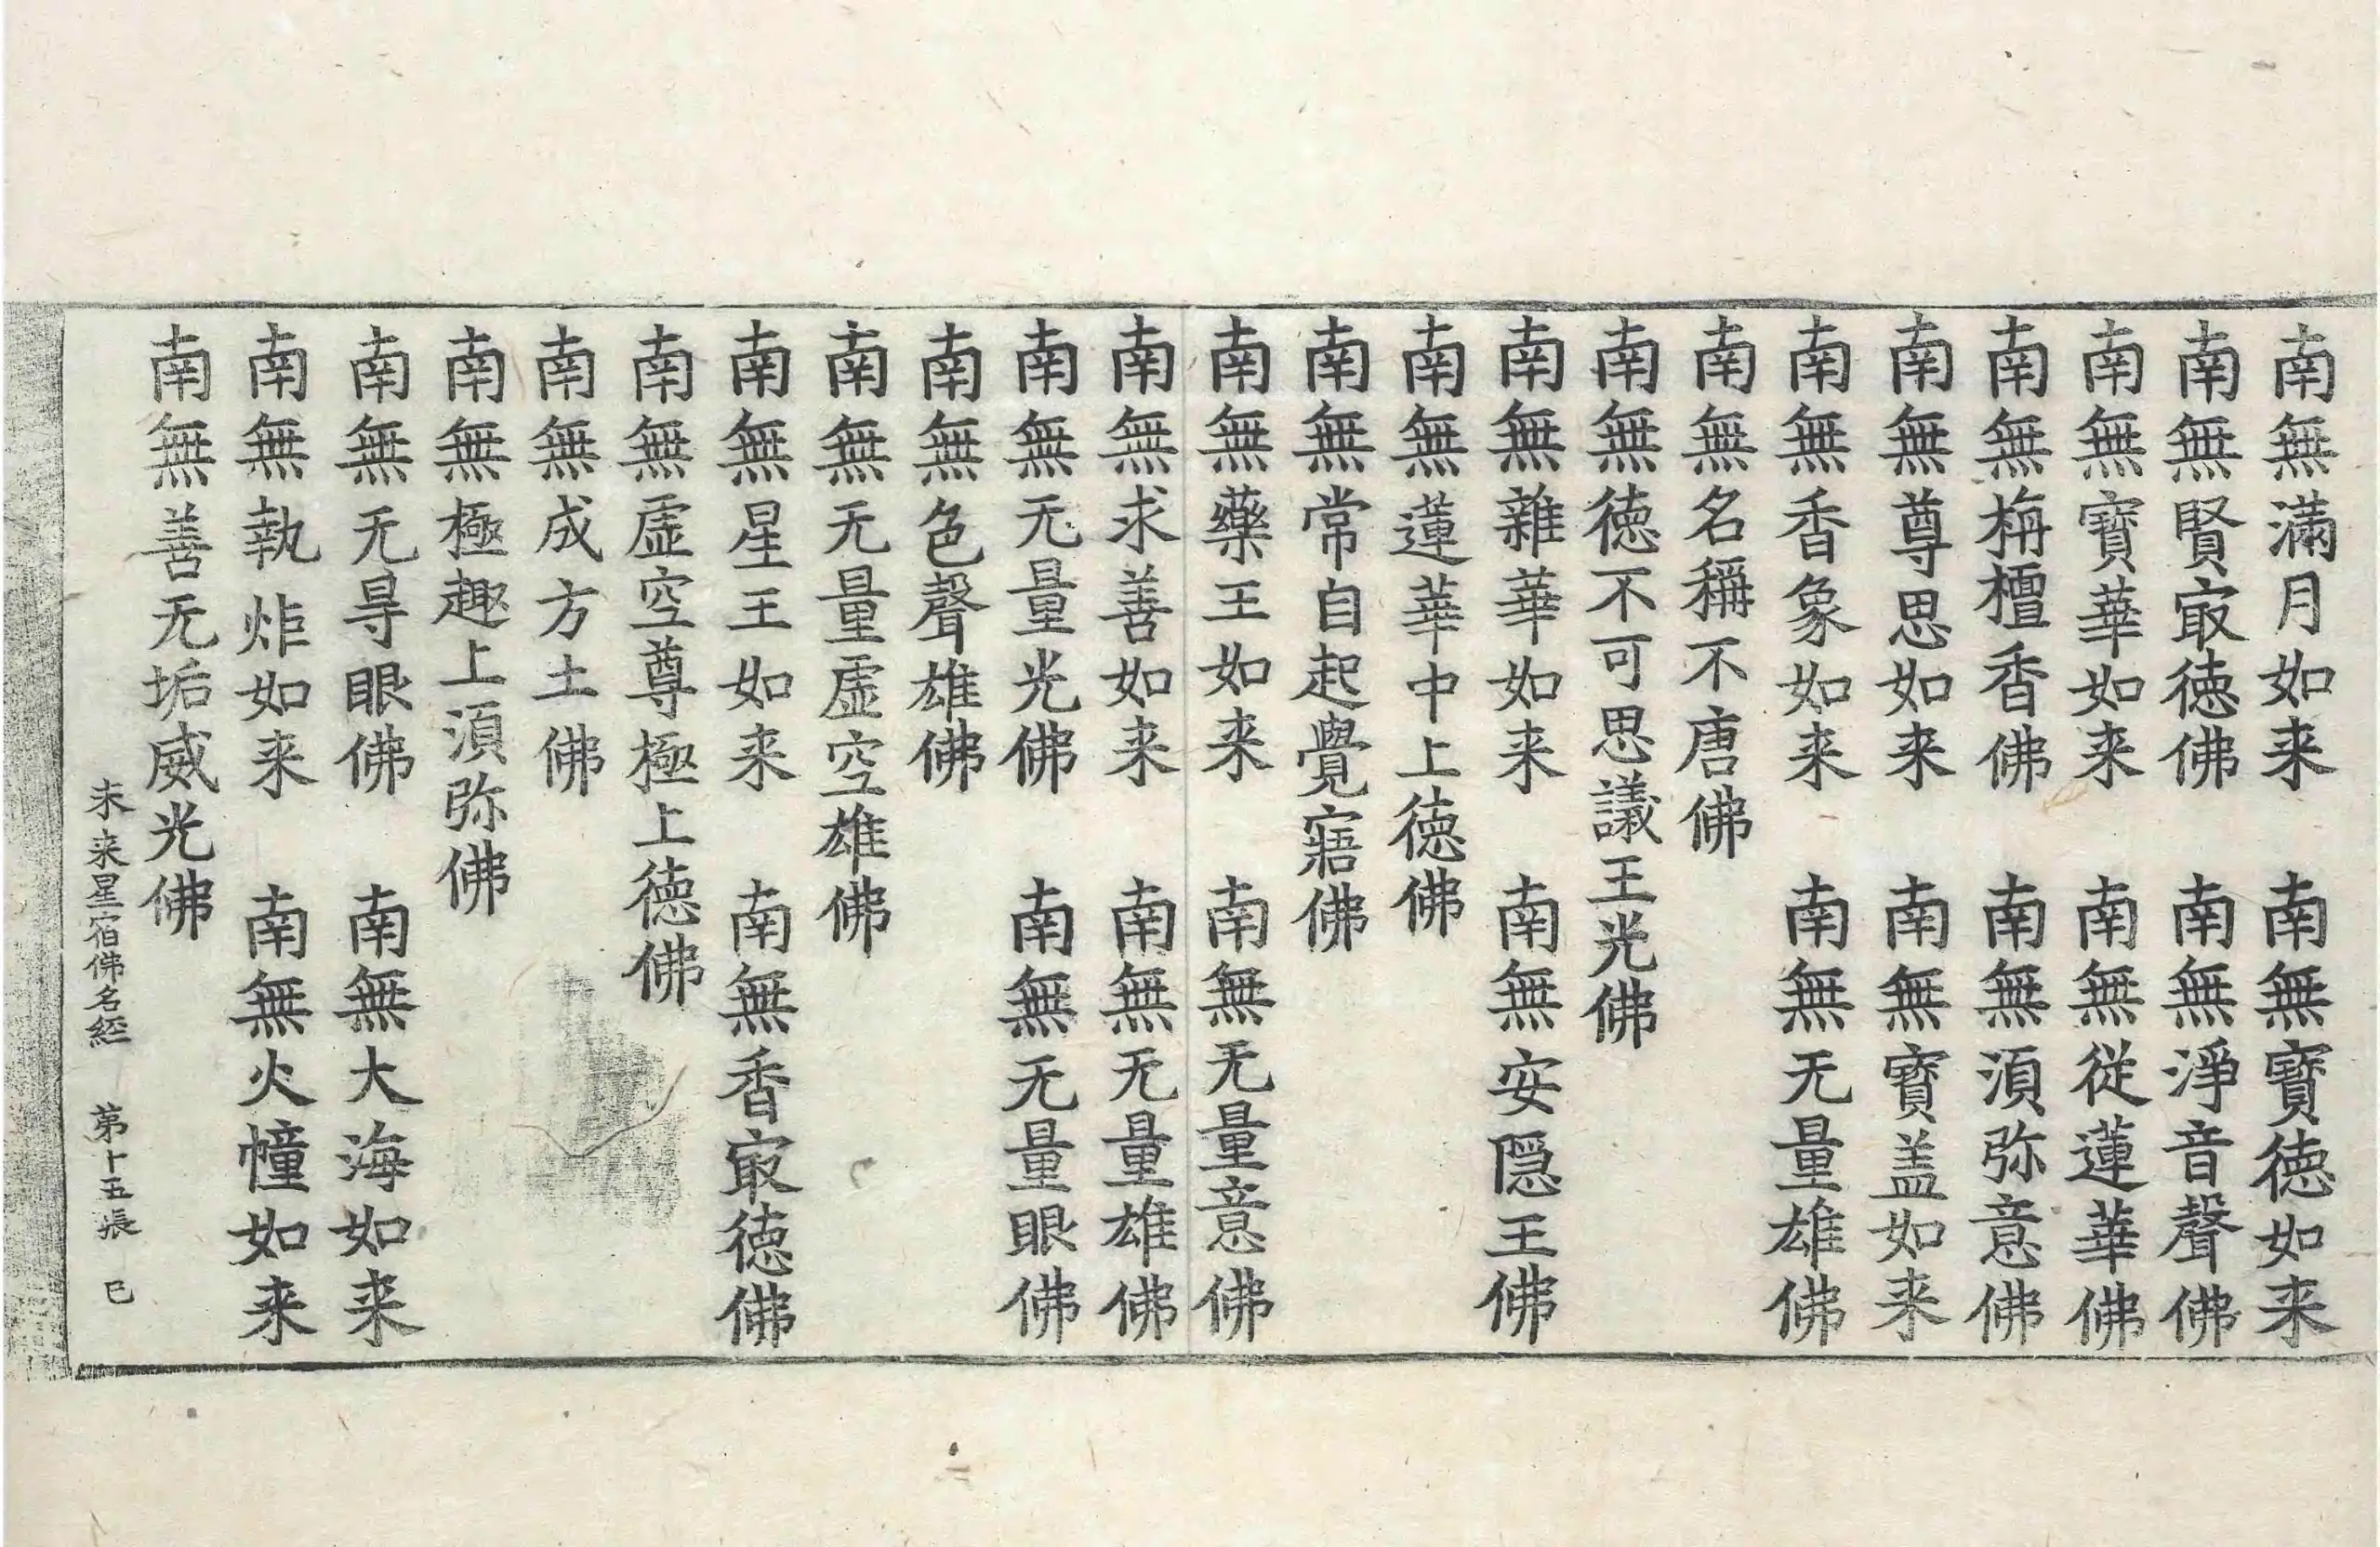 南無滿月如来　南無寶徳如来
南無賢㝡徳佛　南無淨音聲佛
南無寶華如来　南無從蓮華佛
南無栴檀香佛　南無湏弥意佛
南無尊思如来　南無寶盖如来
南無香象如来　南無无量雄佛
南無名稱不唐佛
南無徳不可思議王光佛
南無雜華如来　南無安隱王佛
南無蓮華中上徳佛
南無常自起覺寤佛
南無藥王如来　南無无量意佛
南無求善如来　南無无量雄佛
南無无量光佛　南無无量眼佛
南無色聲雄佛
南無无量虛空雄佛
南無星王如来　南無香㝡徳佛
南無虛空尊極上德佛
南無成方土佛
南無極趣上湏弥佛
南無无㝵眼佛　南無大海如来
南無執炸如来　南無火幢如来
南無善无垢威光佛
未来星宿佛名経　第十五張　巳